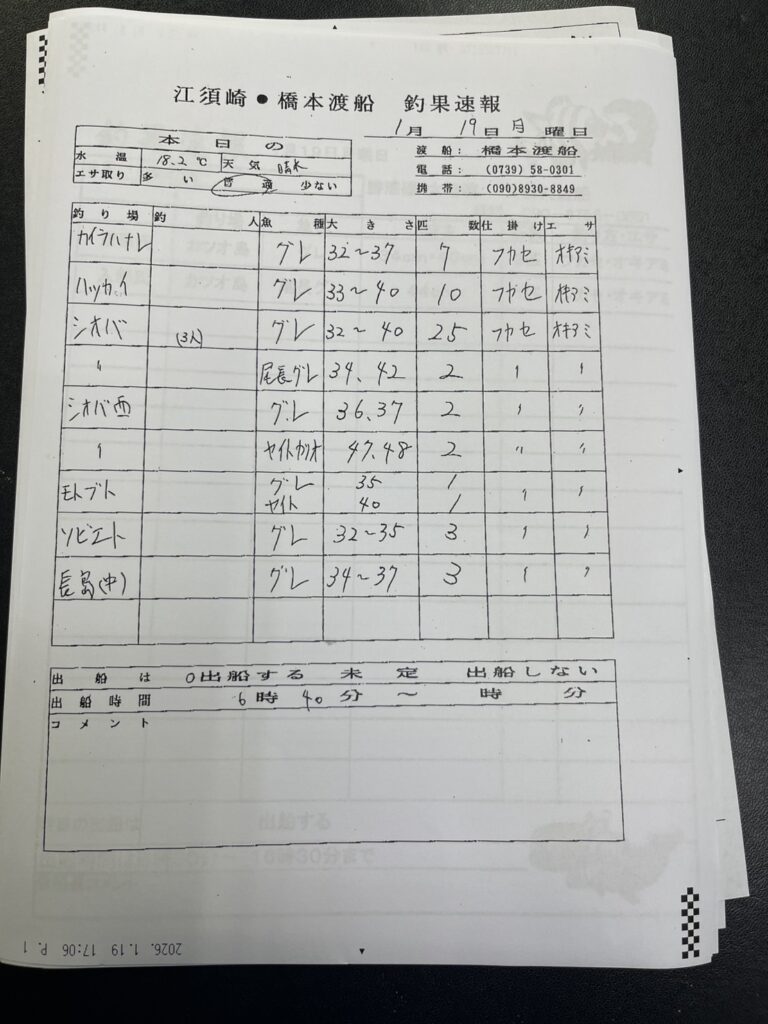 江須崎●橋本渡船 釣果速報
1月 19日 月 曜日
本日の
水温 18.2℃ 天気 晴
エサ取り 多い 普通 少ない
渡船: 橋本渡船
電話: (0739) 58-0301
携帯: (090)8930-8849
釣り場 釣人 魚種 大きさ 匹数 仕掛け エサ
カイラハナレ グレ 32~37 7 フカセ オキアミ
ハッカイ グレ 33~40 10 フカセ オキアミ
シオバ (3人) グレ 32~40 25 フカセ オキアミ
〃 尾長グレ 34、42 2 〃 〃
シオバ西 グレ 36、37 2 〃 〃
〃 ヤイトカツオ 47、48 2 〃 〃
モトブト グレ 35 1 〃 〃
ヤイト 40 1
ソビエト グレ 32~35 3 〃 〃
長島(中) グレ 34~37 3 〃 〃
出船は 0出船する 未定 出船しない
出船時間 6時 40分 ~ 時 分
コメント
出船する
16時30分まで
2026. 1.19 17:06 P. 1